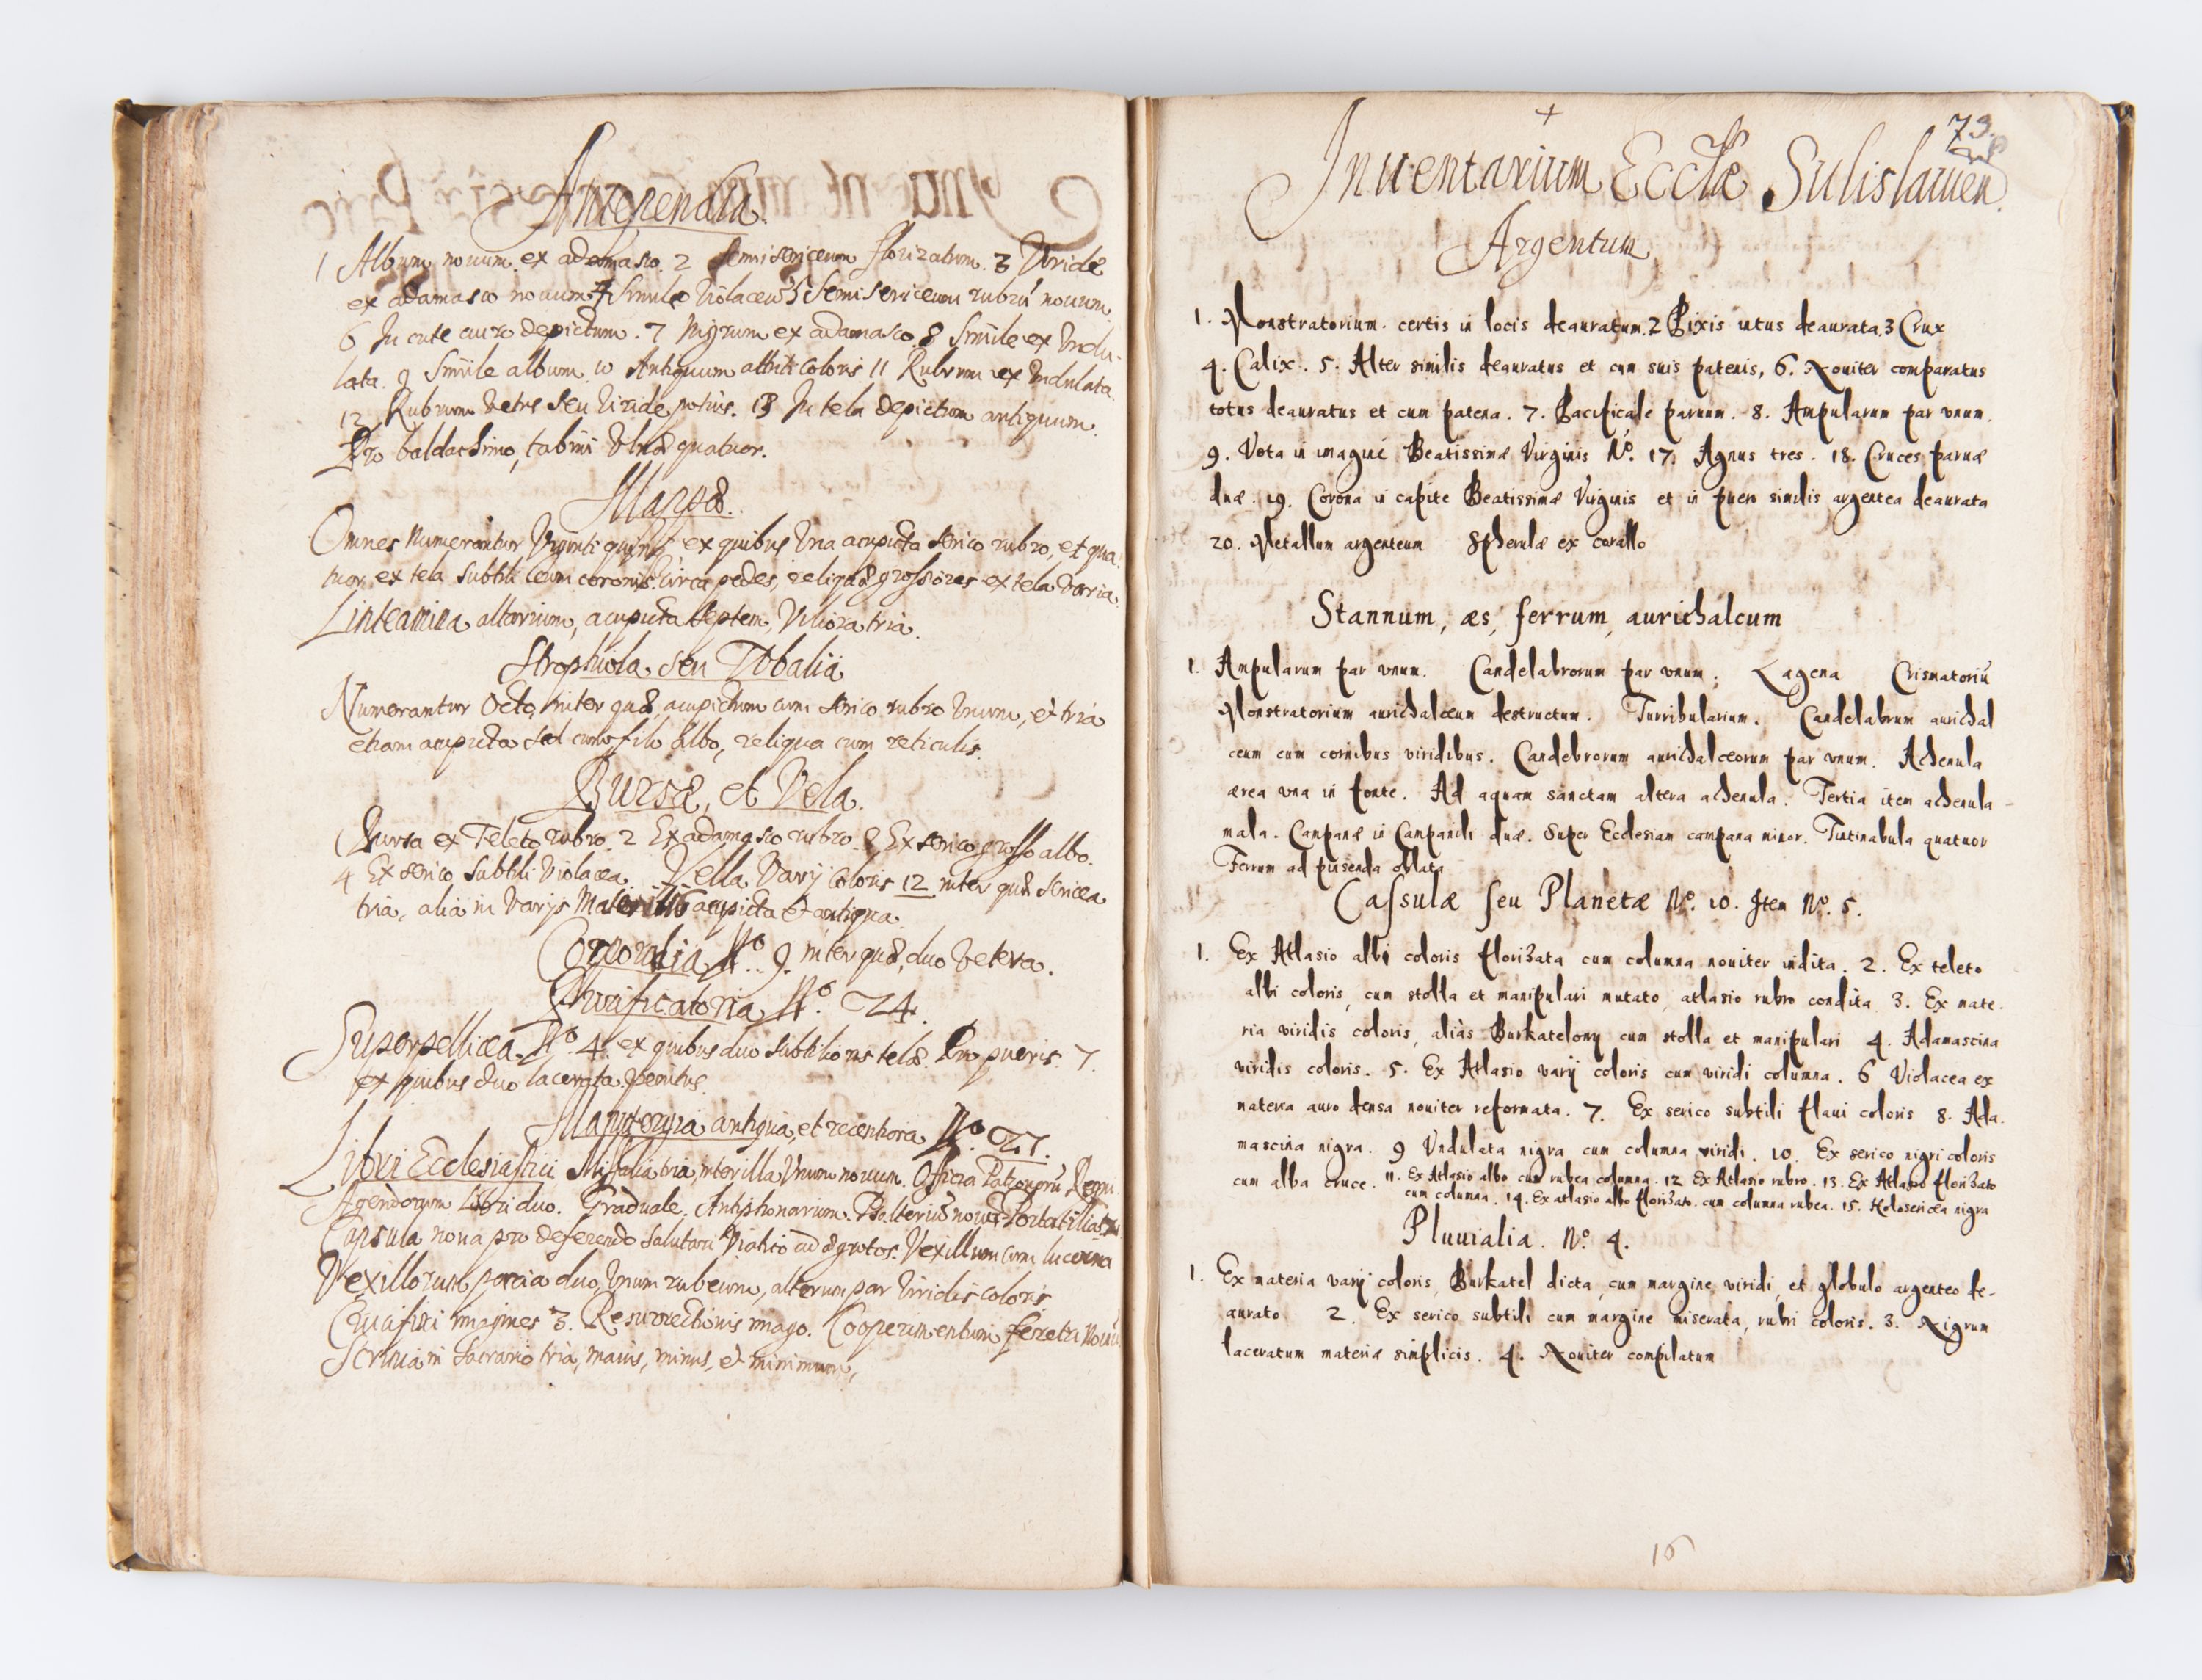 Antependia.
1 Album nouum ex adamasco. 2 Semisericeum florizatum. 3 Viride
ex adamasco nouum 4 Simile Violaceũ 5 Semisericeum rubrũ nouum.
6 In cute auro depictum. 7 Nigrum ex adamasco. 8 Simile ex Undu-
lata. 9 Simile album. 10 Antiquum albi coloris 11 Rubrum ex Undulata.
12 Rubrum Vetus seu Viride potius. 13 In tela depictum antiquum.
Pro baldachimo, tabini Ulnæ quatuor.
Mappæ.
Omnes Numerantur Viginti quinq, ex quibus Una acupicta serico rubro, et qua-
tuor ex tela subtili cum coronis circa pedes, reliquæ grossiores ex tela Varia.
Linteamina altarium, acupicta septem, Viliora tria.
Strophiola seu Tobaliæ
Numerantur Octo, inter quæ, acupictum cum serico rubro Unum, et tria
etiam acupicta sed cum filo albo, reliqua cum reticulis.
Bursæ, et Vela.
Bursa ex Teleto rubro. 2 Ex adamasco rubro. 3 Ex serico grosso albo.
4 Ex serico subtili Violacea. Vella Varij Coloris 12 inter quæ sericea
tria, alia in Varijs acupicta et antiqua.
Corporalia Nº. 9. inter quæ, duo Vetera.
Purificatoria Nº. 24.
Superpellicea Nº. 4. ex quibus duo subtilioris telæ. Pro pueris. 7.
ex quibus duo lacerata penitus.
Manutergia antiqua, et recentiora Nº. 27.
Libri Ecclesiastici Missalia tria, inter illa Unum nouum. Officia Patronorũ Regni.
Agendorum Libri duo. Graduale. Antiphonarium. Psalteriũ nouũ. Portatilia
Capsula noua pro deferendo salutari Viatico ad ægrotos. Vexillum cum lucerna
Vexillorum paria duo, Unum rubeum, alterum par Viridis coloris
Crucifixi imagines 3. Resurrectionis imago. Cooperimentum feretri nouũ
Scrinia in Sacrario tria, maius, minus, et minimum,
+
79.
Inuentarium Eccłæ Sulislauuen.
Argentum
1. Monstratorium. certis in locis deauratum. 2 Pixis intus deaurata. 3 Crux
4. Calix. 5. Alter similis deauratus et cum suis patenis, 6. Nouiter comparatus
totus deauratus et cum patena. 7. Pacificale paruum. 8. Ampularum par vnum.
9. Vota in imagine Beatissimæ Virginis Nº. 17. Agnus tres. 18. Cruces paruæ
duæ. 19. Corona in capite Beatissimæ Virginis et in puero similis argentea deaurata
20. Metallum argenteum Spherulæ ex corallo
Stannum, æs, ferrum, aurichalcum
1. Ampularum par vnum. Candelabrorum par vnum; Lagena Crismatoriũ
Monstratorium aurichalceum destructum. Turribularium. Candelabrum aurichal
ceum cum cornibus viridibus. Candebrorum aurichalceorum par vnum. Achenula
ærea vna in fonte. Ad aquam sanctam altera achenula. Tertia item achenula
mala. Campanæ in Campanili duæ. Super Ecclesiam campana minor. Tintinabula quatuor
Ferrum ad pinsenda oblata
Cassulæ seu Planetæ Nº. 10. Item Nº. 5.
1. Ex Atlasio albi coloris florizata cum columna nouiter indita. 2. Ex teleto
albi coloris, cum stolla et manipulari mutato, atlasio rubro condita. 3. Ex mate-
ria viridis coloris, aliàs Burkatelowy cum stolla et manipulari 4. Adamascina
viridis coloris. 5. Ex Atlasio varij coloris cum viridi columna. 6 Violacea ex
materia auro densa nouiter reformata. 7. Ex serico subtili flaui coloris 8. Ada-
mascina nigra. 9 Vndulata nigra cum columna viridi. 10. Ex serico nigri coloris
cum alba cruce. 11. Ex Atlasio albo cum rubea columna. 12 Ex Atlasio rubro. 13. Ex Atlasio florizato
cum columna. 14. Ex atlasio albo florizato cum columna rubea. 15. Holosericea nigra
Pluuialia. Nº. 4.
1. Ex materia varij coloris, Burkatel dicta, cum margine viridi, et globulo argenteo de-
aurato 2. Ex serico subtili cum margine miserata, rubri coloris. 3. Nigrum
laceratum materiæ simplicis. 4. Nouiter compilatum